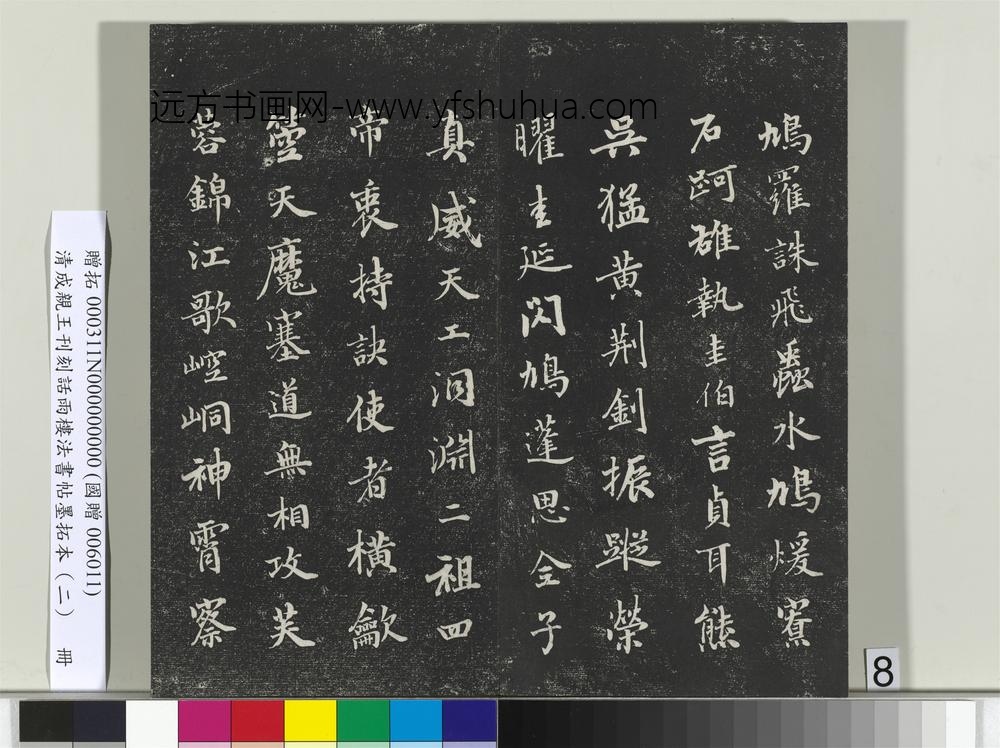 鳩羅誅飛蟲水鳩煖寮
石訶雄執圭伯言貞耳熊
吳猛黄荆釗振蹤榮
曜圭延閃鳩蓬思全子
真威天工洞淵二祖四
帝裹持訣使者橫歙
瑩天魔塞道無相攻芙
蓉錦江歌崆峒神霄察
远方书画网-www.yfshuhua.com
贈拓 000311N000000000 (國贈 006011)
清成親王刊刻話雨樓法書帖墨拓本（二） 冊
8